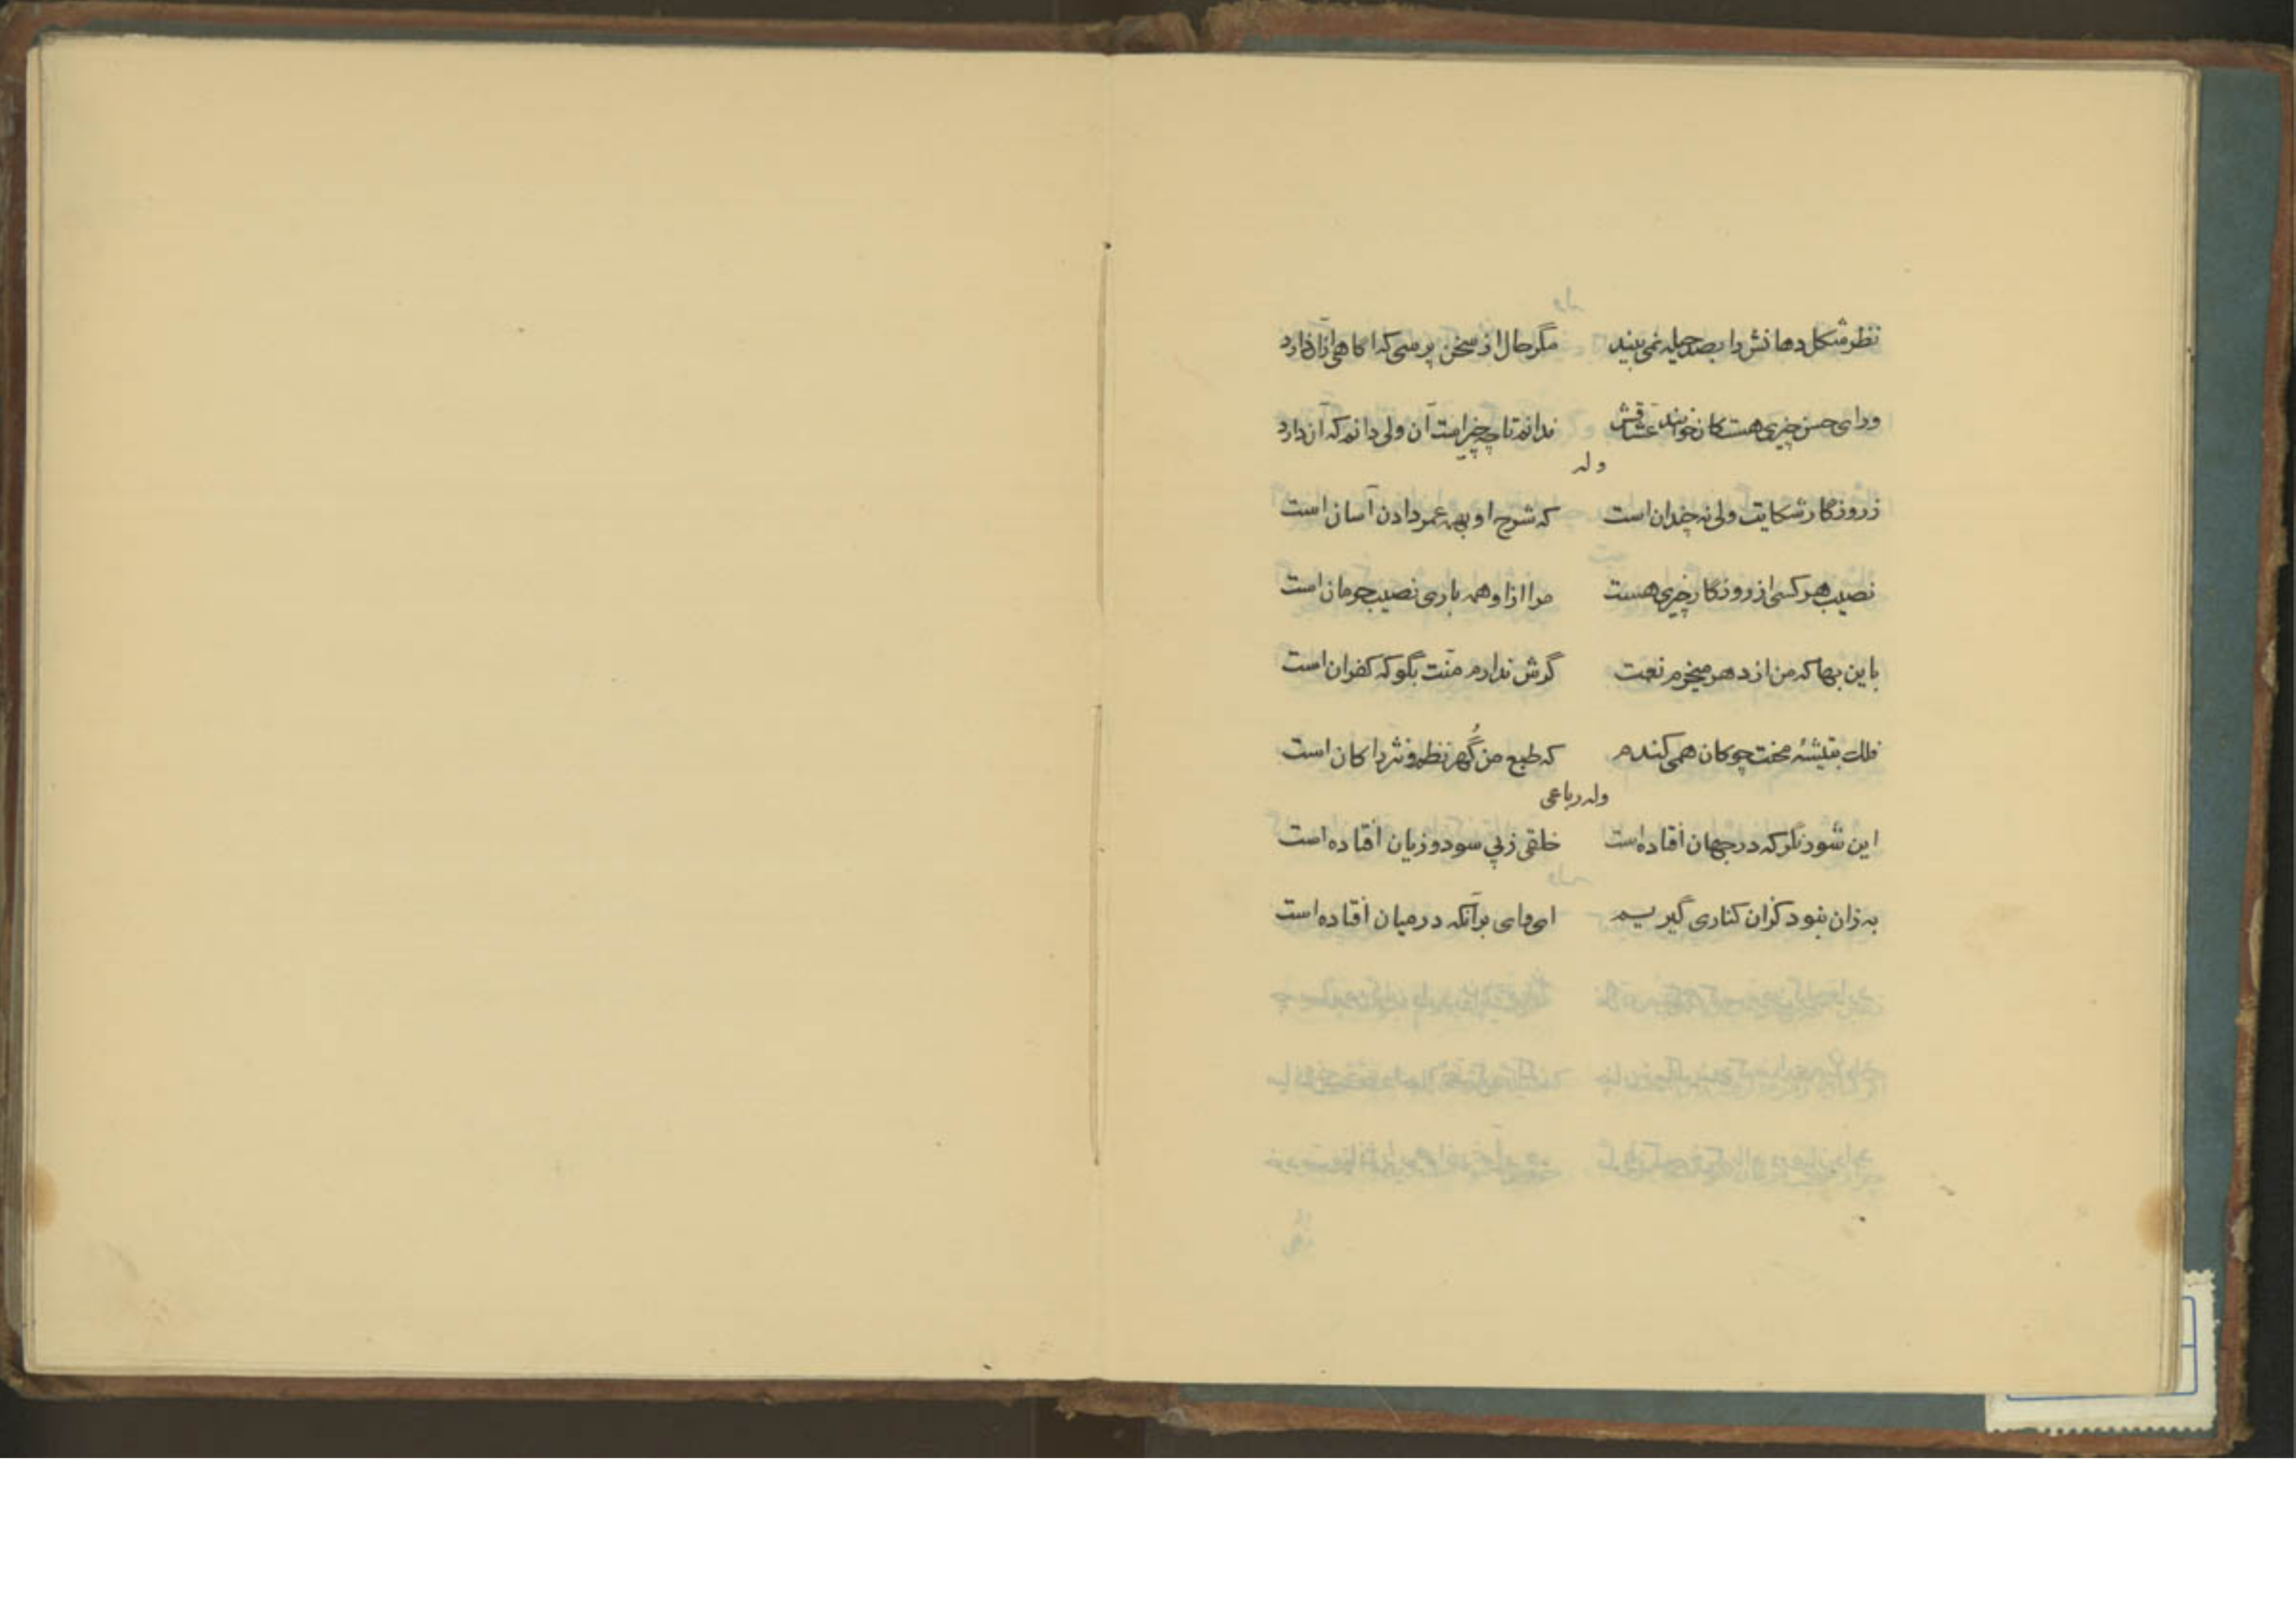 نظر شکل دهانش را بصد حیله نمی بیند مگر حال از سخن پرسی که اکاهی ازان دارد
ورای حسن چیزی هست کان خوانند عشاقش ندانم تا چه چیز است آن ولی دانم که آن دارد
وله
ز روزگار شکایت ولی نه چندان است که شرح او بهمه عمر دادن آسان است
نصیب هر کسی از روزگار چیزی هست مرا ازا وهمه باری نصیب حرمان است
باین بها که من از دهر میخرم نعمت گرش ندارم منّت بگو که کفران است
فلك بتیشۀ محنت چو کان همی کندم که طبع من گُهر نظم و نثر را کان است
وله رباعی
این شور نگر که در جهان افتاده است خلقی ز پی سود و زیان افتاده است
به زان نبود کزان کناری گیریم ای وای بر آنکه در میان افتاده است